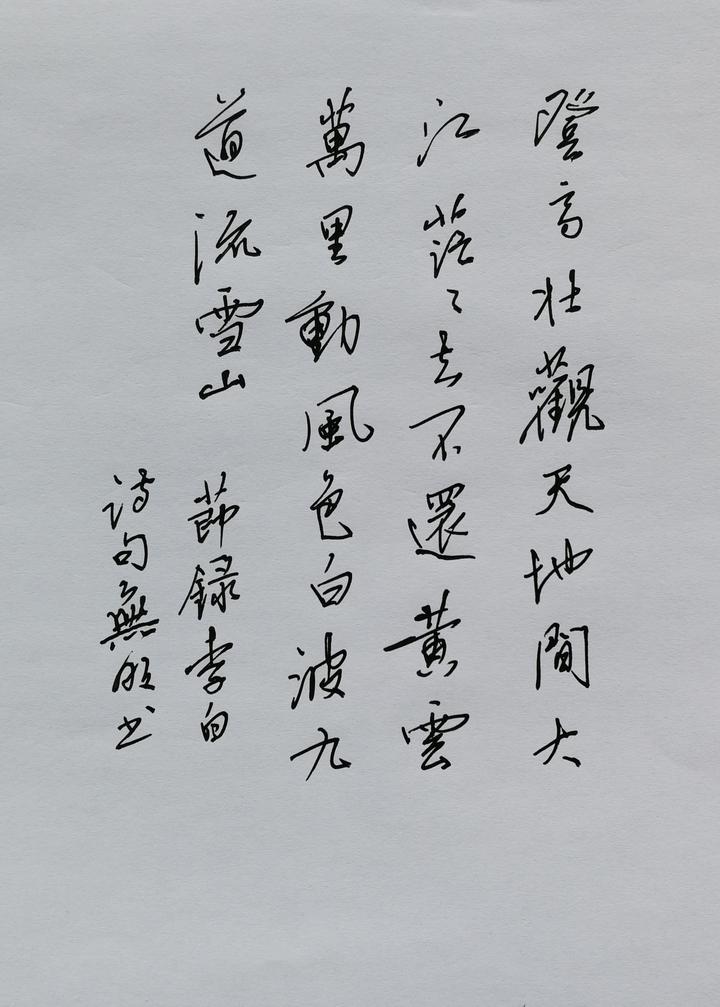 登高壯觀天地間大
江茫々去不還黃雲
萬里動風色白波九
道流雪山
節錄李白
詩句無的书